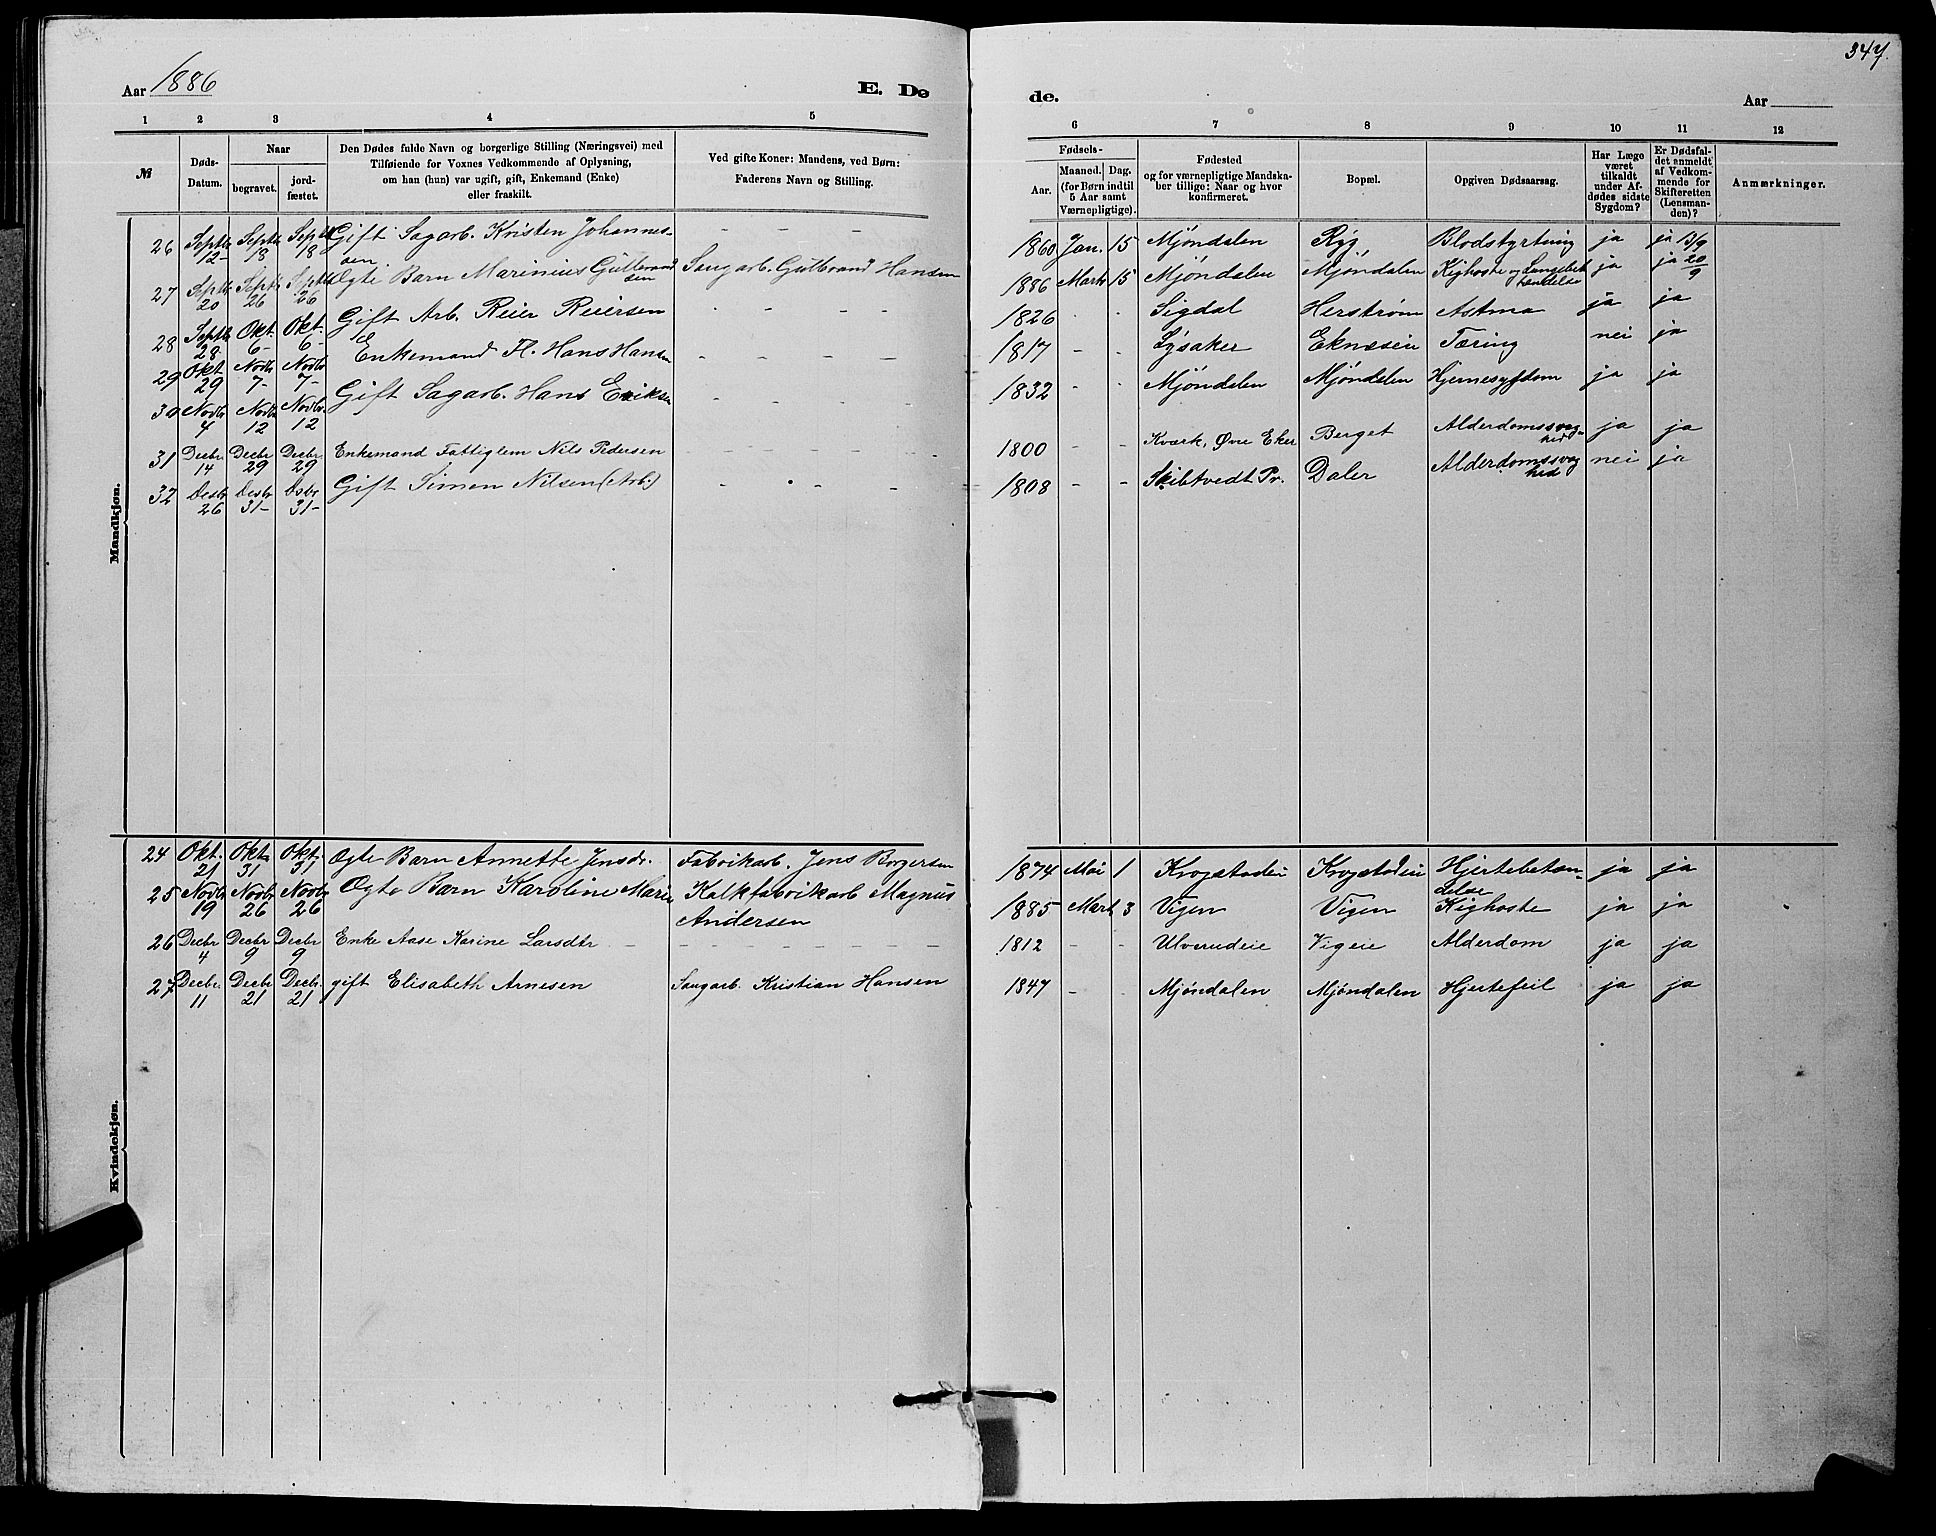 347.
Aar 1886
E. Dø
de.
Aar
1 2 3 4 5
6 7 8 9 10 11 12
№
Døds-Datum.
Naar
begravet.
jord-fæstet.
Den Dødes fulde Navn og borgerlige Stilling (Næringsvei) med
Tilføiende for Voxnes Vedkommende af Oplysning,
om han (hun) var ugift, gift, Enkemand (Enke)
eller fraskilt.
Ved gifte Koner: Mandens, ved Børn:
Faderens Navn og Stilling.
Fødsels-
Aar.
Maaned. Dag.
(for Børn indtil
5 Aar samt
Værnepligtige).
Fødested
og for værnepligtige Mandska-
ber tillige: Naar og hvor
konfirmeret.
Bopæl.
Opgiven Dødsaarsag.
Har Læge
været
tilkaldt
under Af-
dødes sidste
Sygdom?
Er Dødsfal-
det anmeldt
af Vedkom-
mende for
Skifteretten
(Lensman-
den)?
Anmærkninger.
Mandkjøn.
26 Septbr 12- Septbr 18 Septbr 18 Gift Sagarb. Kristen Johannes-
sen - - - 1860 Jan. 15 Mjøndalen Ryg, Blodstyrtning ja ja 13/9
27 Septbr 20 Septbr 26 Septbr 26 Ægte Barn Marinius Gulbrand
sen Saugarb. Gulbrand Hansen 1886 Marts 15 Mjøndalen Mjøndalen Kighoste og Lungebet
tændelse ja ja 20/9
28 Septbr 28 Okt. 6- Okt. 6- Gift Arb. Reier Reiersen - - - 1826 - - Sigdal Herstrøm Astma ja ja
29 Okt 29 Novbr 7- Novbr 7- Enkemand Fl. Hans Hansen - - - 1817 - - Lysaker Eknæseie Tæring nei ja
30 Novbr 4 Novbr 12 Novbr. 12 Gift Sagarb. Hans Eriksen - - - 1832 - - Mjøndalen Mjøndalen Hjernesygdom ja ja
31 Decbr 14 Decbr 29 Decbr 29 Enkemand Fattiglem Nils Pedersen - - - 1800 - - Kværk, Øvre Eker Berget Alderdomssvag-
hed ja ja
32 Desbr 26 Desbr 31- Dsbr 31- Gift Simen Nilsen (Arb.) - - - 1808 - - Skibtvedt Pr. Daler Alderdomssvag
hed nei ja
Kvindekjøn.
24 Okt. 21 Okt 31 Okt. 31 Ægte Barn Annette Jensdr. Fabrikarb. Jens Borgersen 1874 Mai 1 Krogstadeie Krogstadeie Hjertebetæn-
delse ja ja
25 Novbr 19 Novbr 26 Novbr 26 Ægte Barn Karoline Marie Kalkfabrikarb Magnus
Andersen 1885 Mart 3 Vigen Vigen Kighoste ja ja
26 Decbr 4 Decbr 9 Decbr 9 Enke Aase Karine Larsdtr - - - - 1812 - - Ulverudeie Vigeie Alderdom ja ja
27 Decbr. 11 Decbr 21 Decbr. 21 gift Elisabeth Arnesen Saugarb. Kristian Hansen 1847 - - Mjøndalen Mjøndalen Hjertefeil ja ja